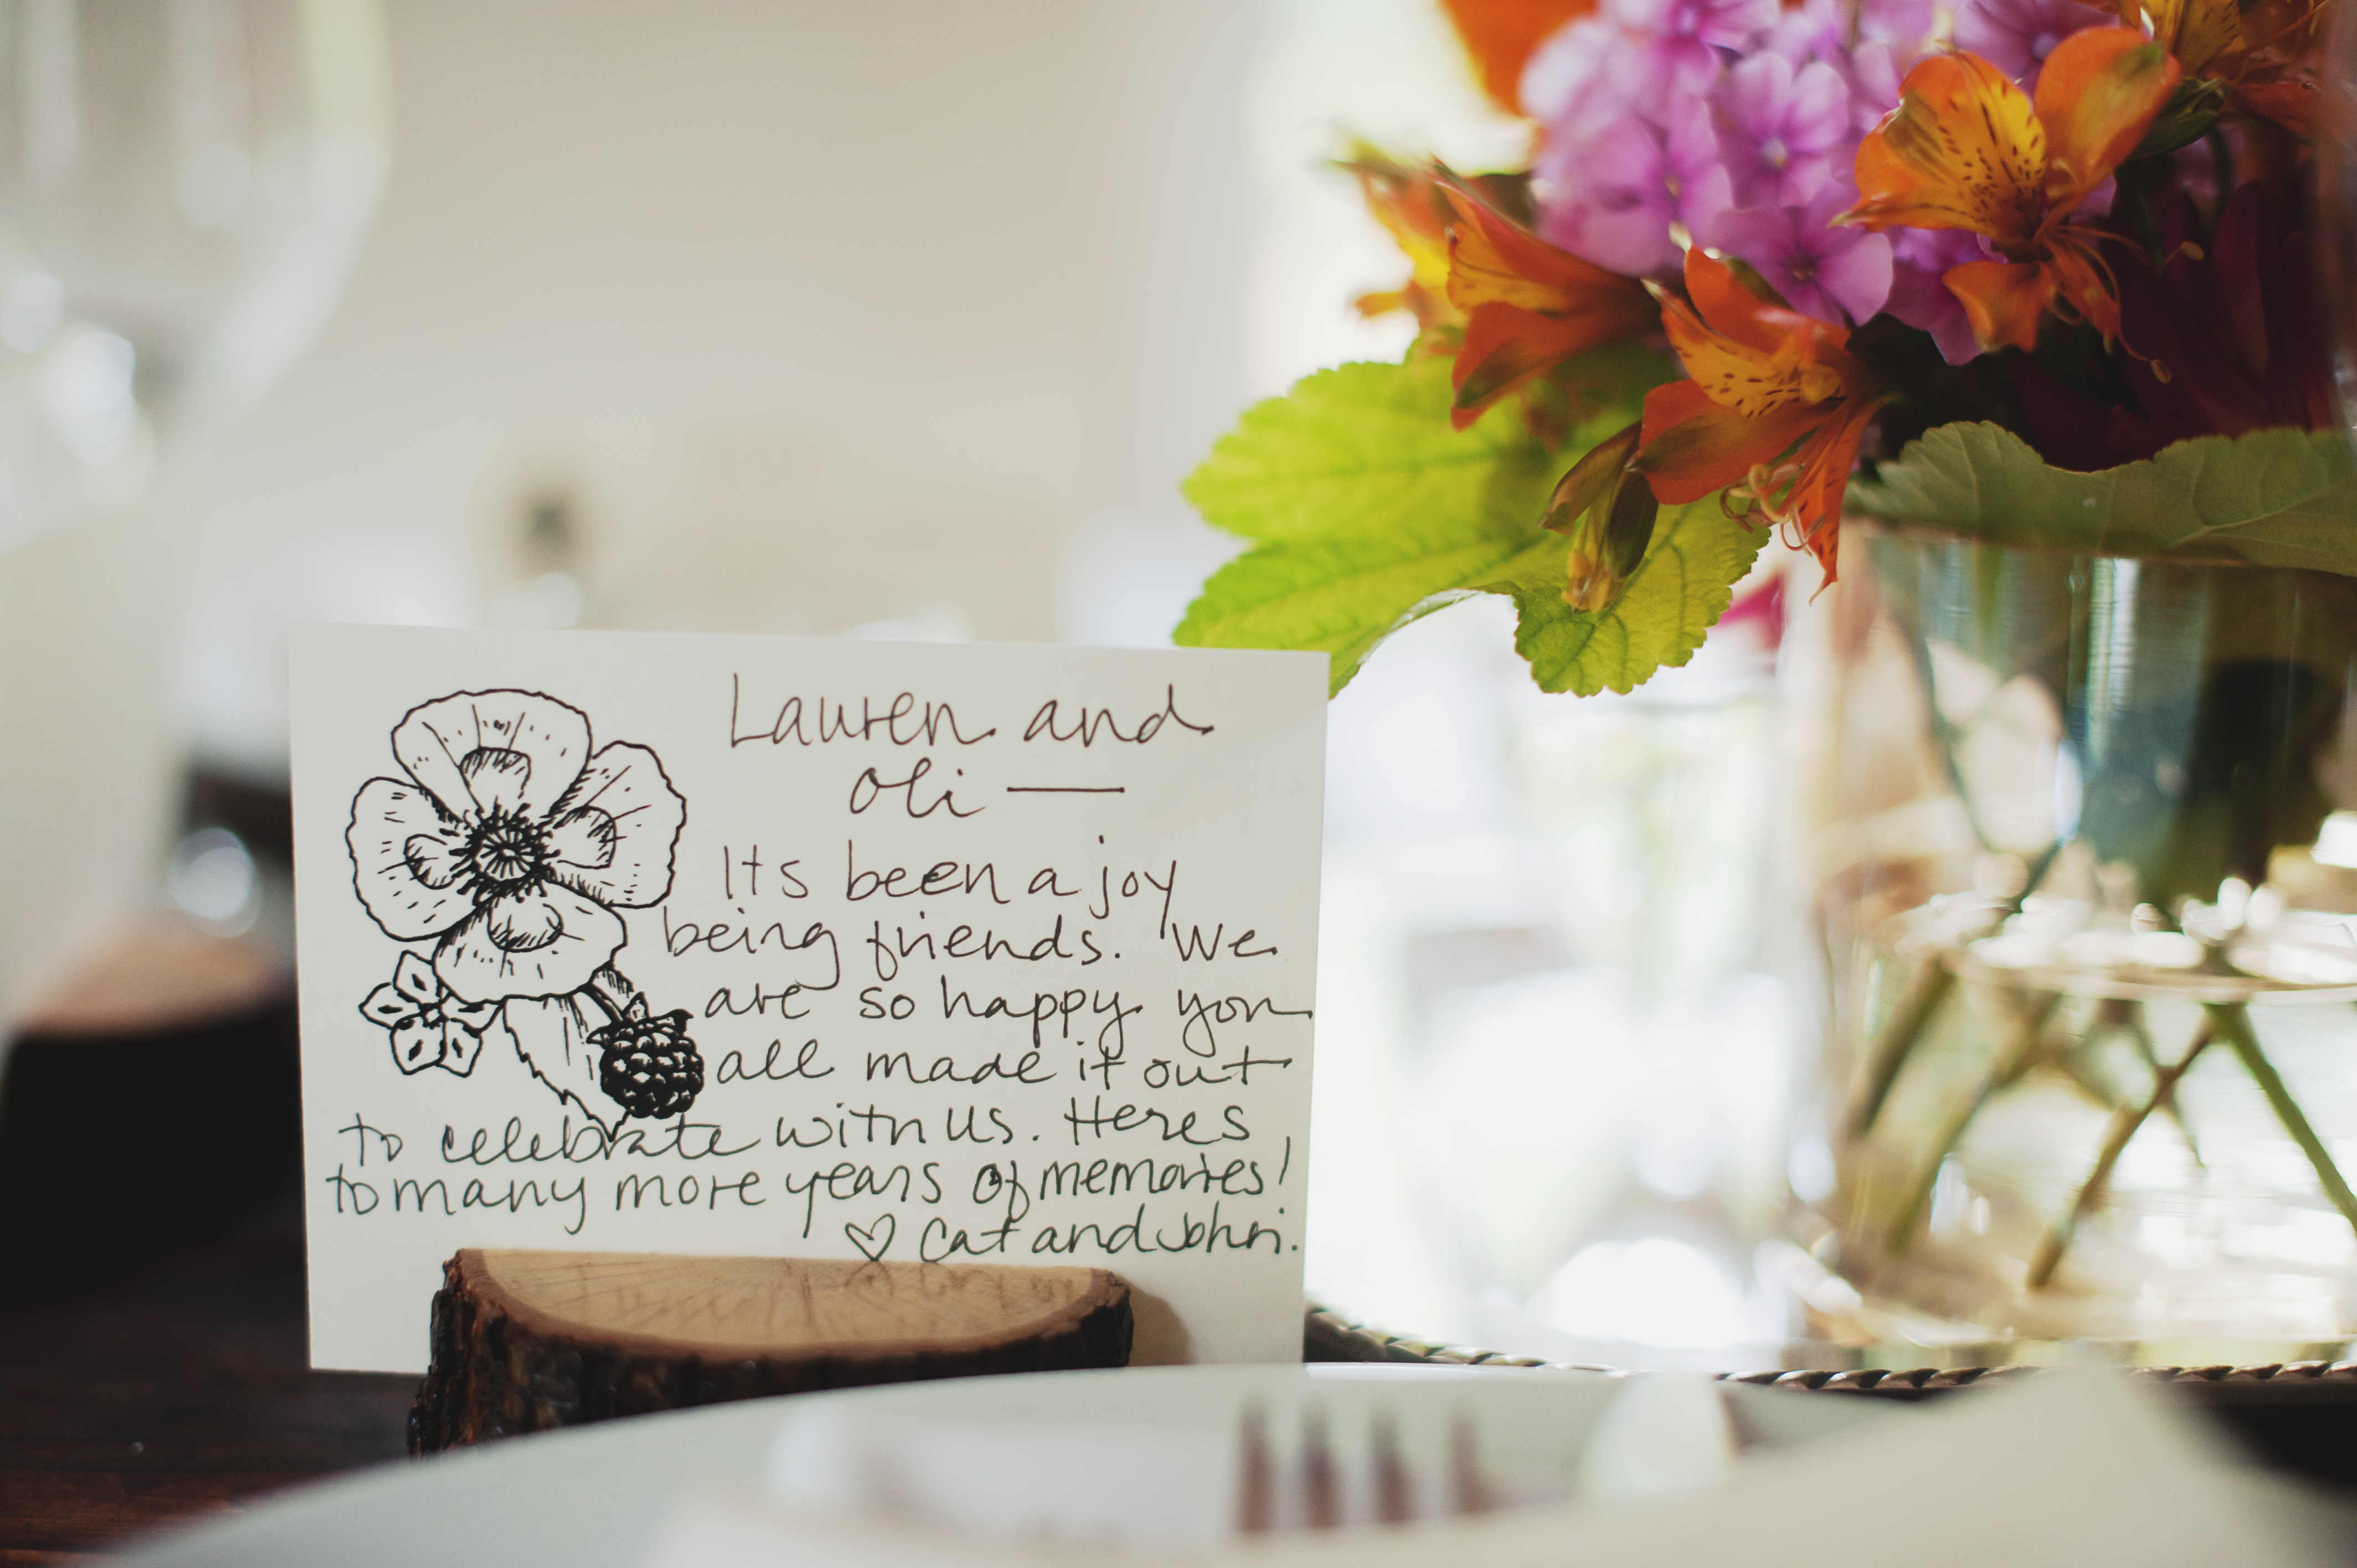 Lauren and
Oli —
Its been a joy
being friends. We
are so happy you
all made it out
to celebrate with us. Heres
to many more years of memories!
♡ Cat and John.